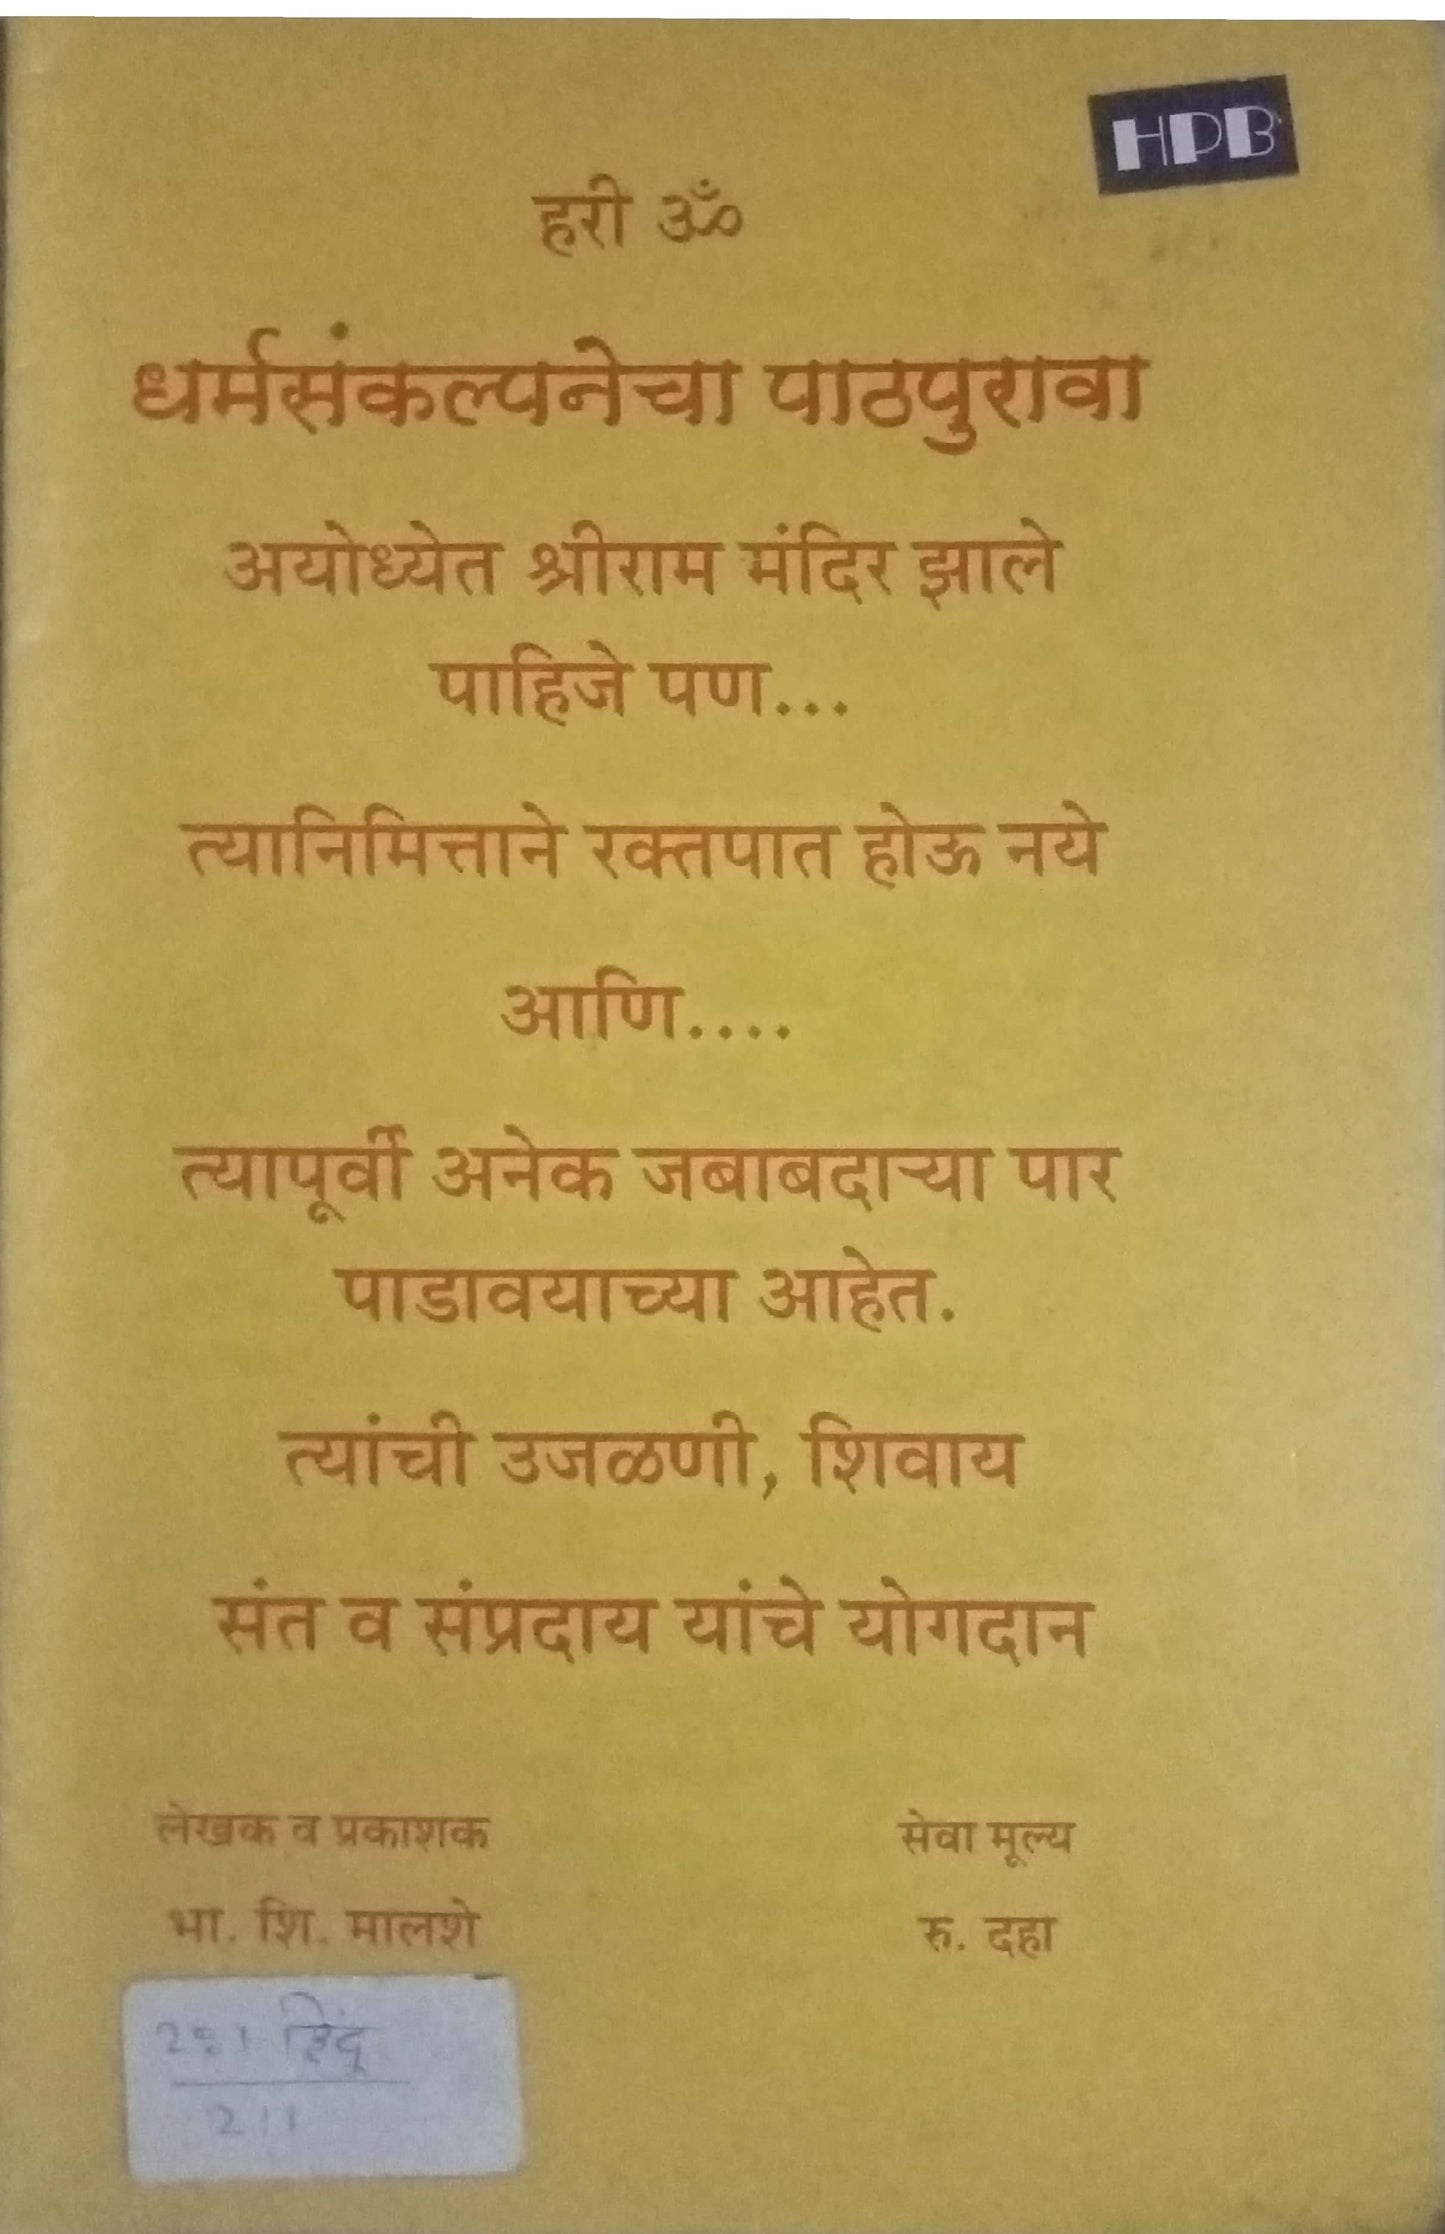 HPB
हरी ॐ
धर्मसंकल्पनेचा पाठपुरावा
अयोध्येत श्रीराम मंदिर झाले
पाहिजे पण...
त्यानिमित्ताने रक्तपात होऊ नये
आणि....
त्यापूर्वी अनेक जबाबदाऱ्या पार
पाडावयाच्या आहेत.
त्यांची उजळणी, शिवाय
संत व संप्रदाय यांचे योगदान
लेखक व प्रकाशक
सेवा मूल्य
भा. शि. मालशे
रु. दहा
हिंदू
211